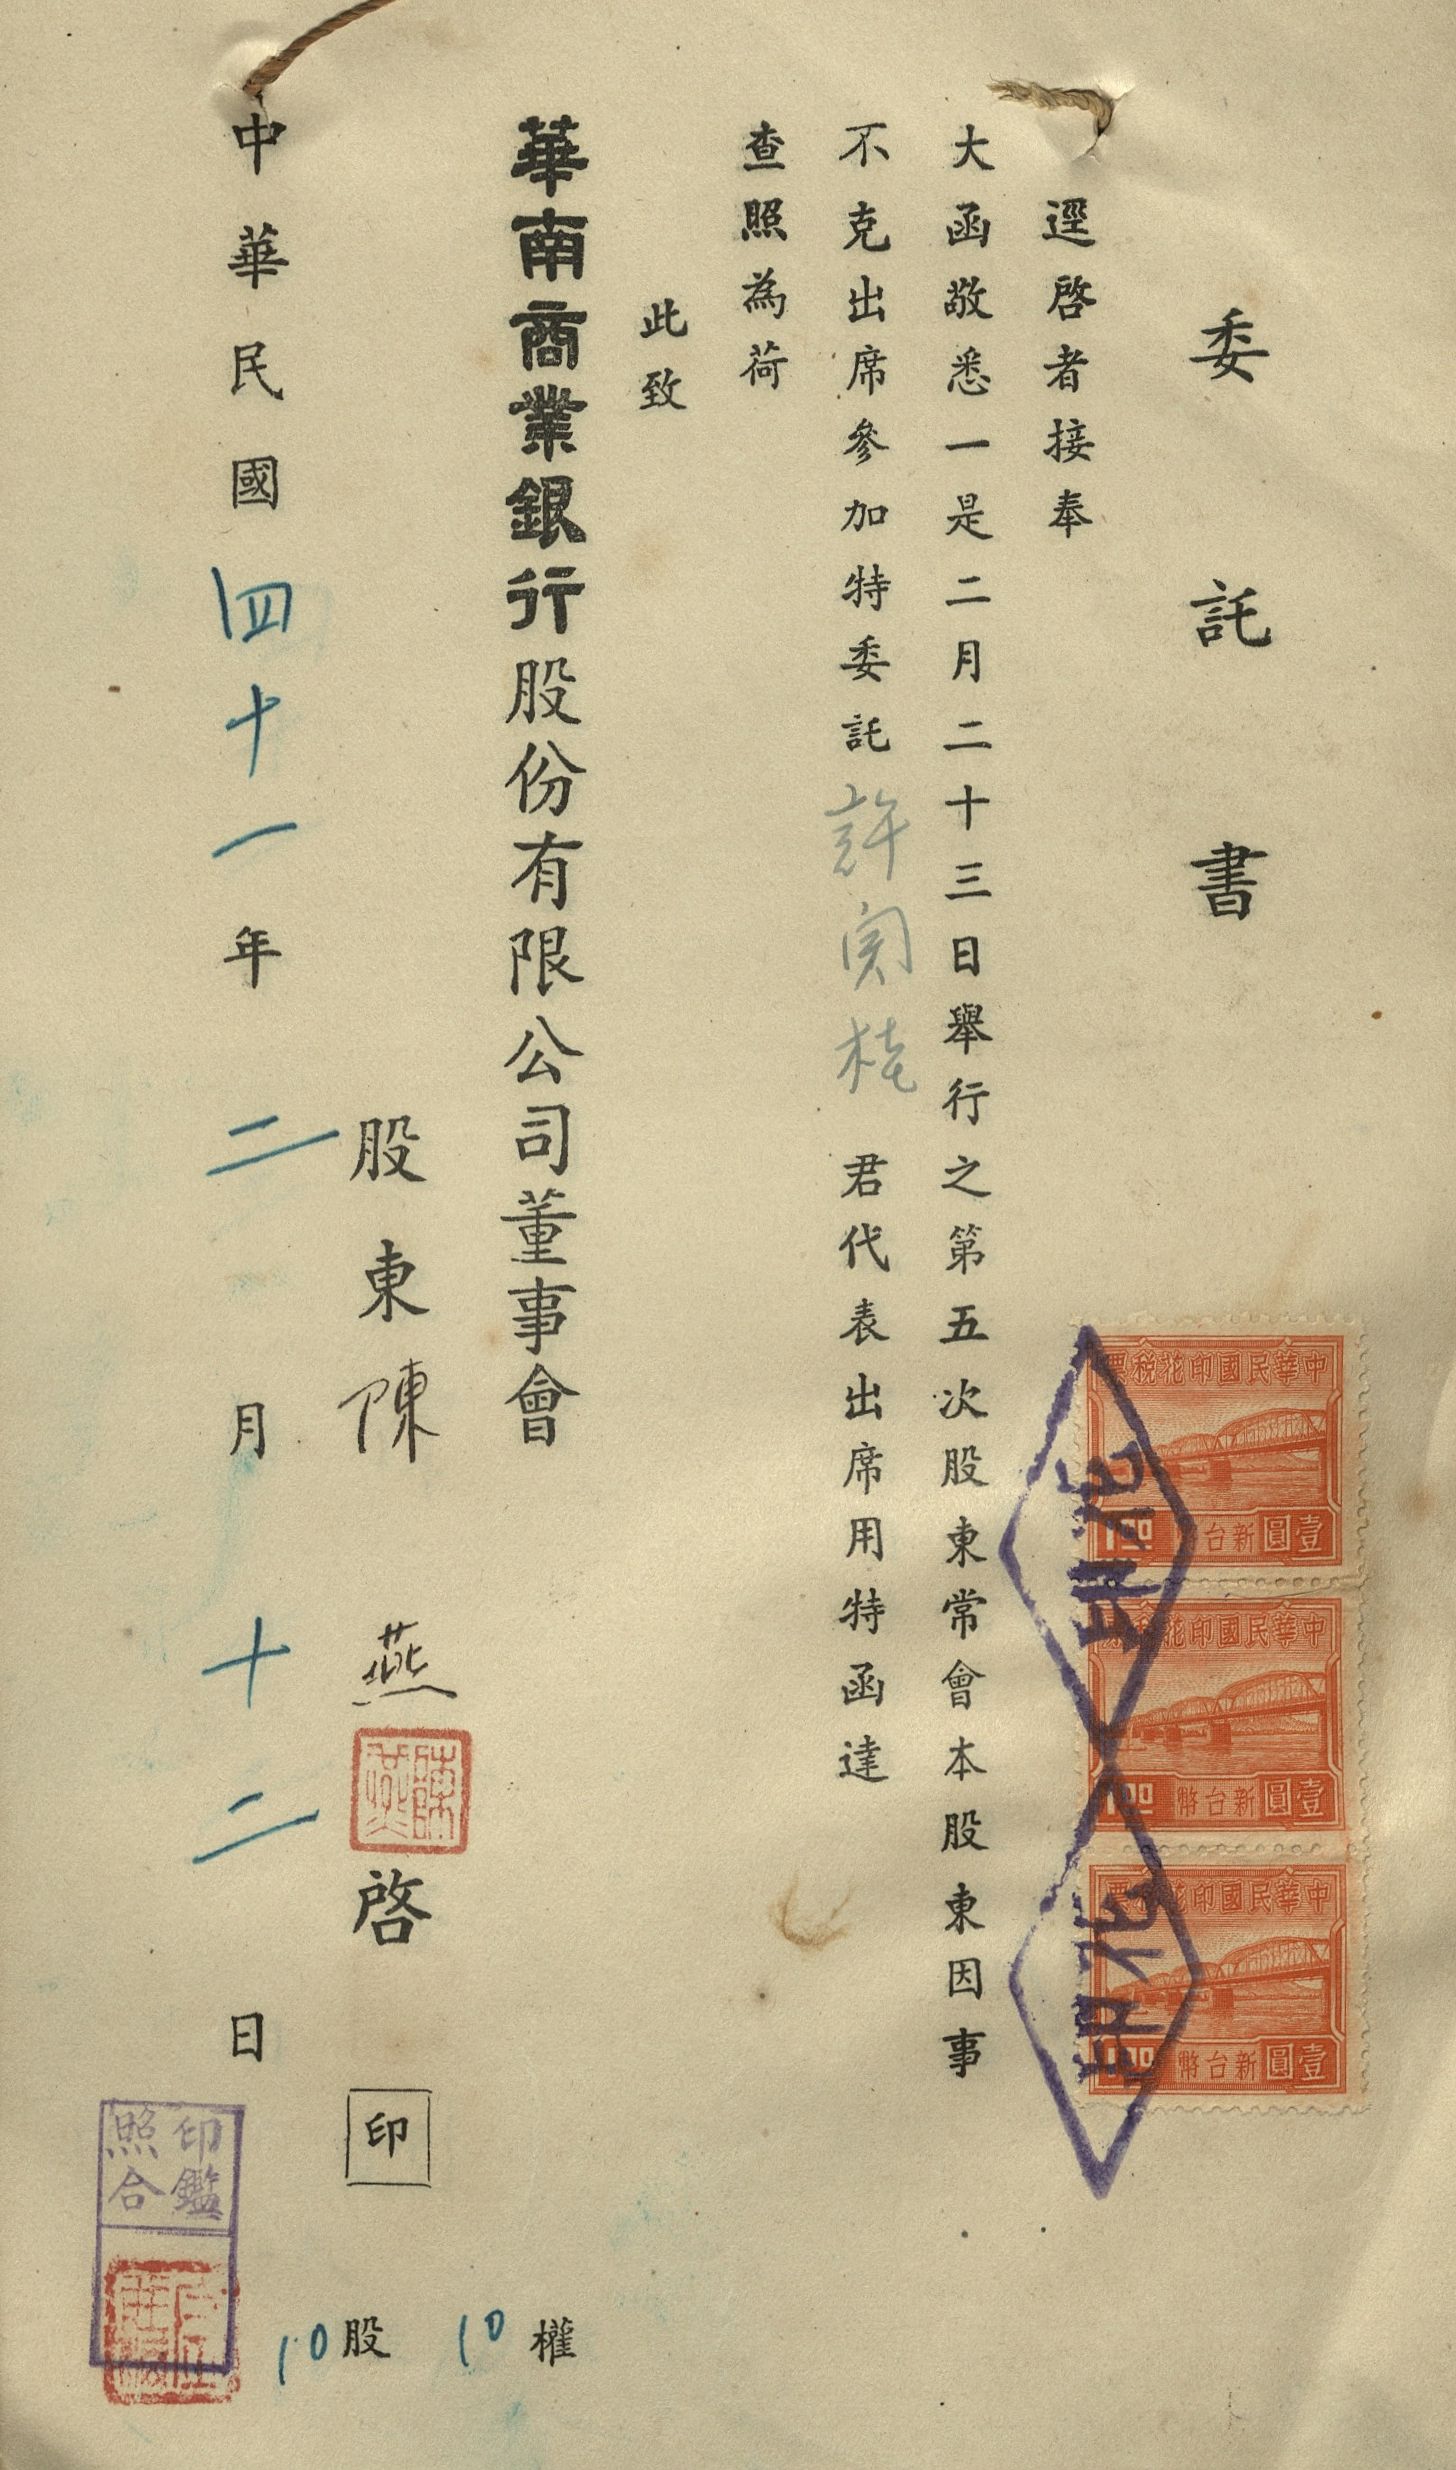 委託書
逕啓者接奉
大函敬悉一是二月二十三日舉行之第五次股東常會本股東因事
不克出席參加特委託許 君代表出席用特函達
查照為荷
此致
華南商業銀行股份有限公司董事會
股東陳燕啓 印
陳燕
10權
10股
中華民國四十一年二月十二日
印鑑
照合
中華民國印花稅票
新台幣壹圓
1.00
中華民國印花稅票
新台幣壹圓
1.00
中華民國印花稅票
新台幣壹圓
1.00
印花
印花